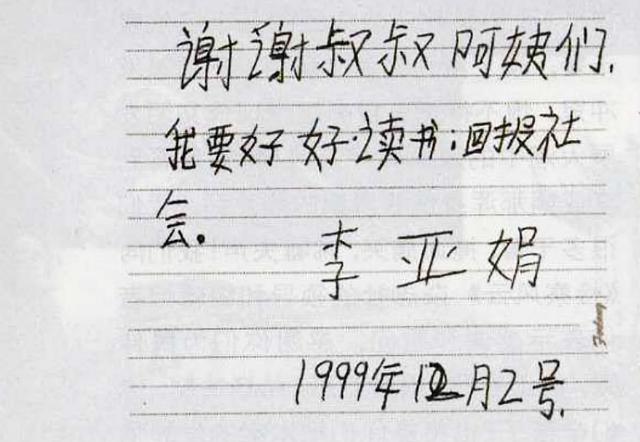 谢谢叔叔阿姨们.
我要好好读书;回报社
会。
李亚娟
1999年12月2号.